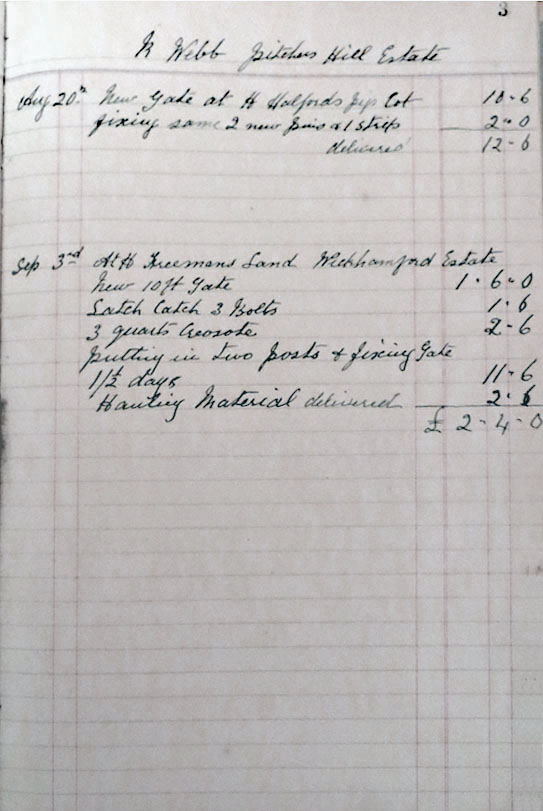 3
R Webb Pitchers Hill Estate
Aug 20th New Gate at H Halfords Pig Cot 10-6
fixing same 2 new pins & 1 strip 2-0
delivered 12-6
Sep 3rd At H Freemans Land Wickhamford Estate
New 10ft Gate 1-6-0
Latch Catch 3 Bolts 1-6
3 quarts Creosote 2-6
putting in two posts & fixing Gate
1 1/2 days 11-6
Hauling Material delivered 2-6
£ 2-4-0